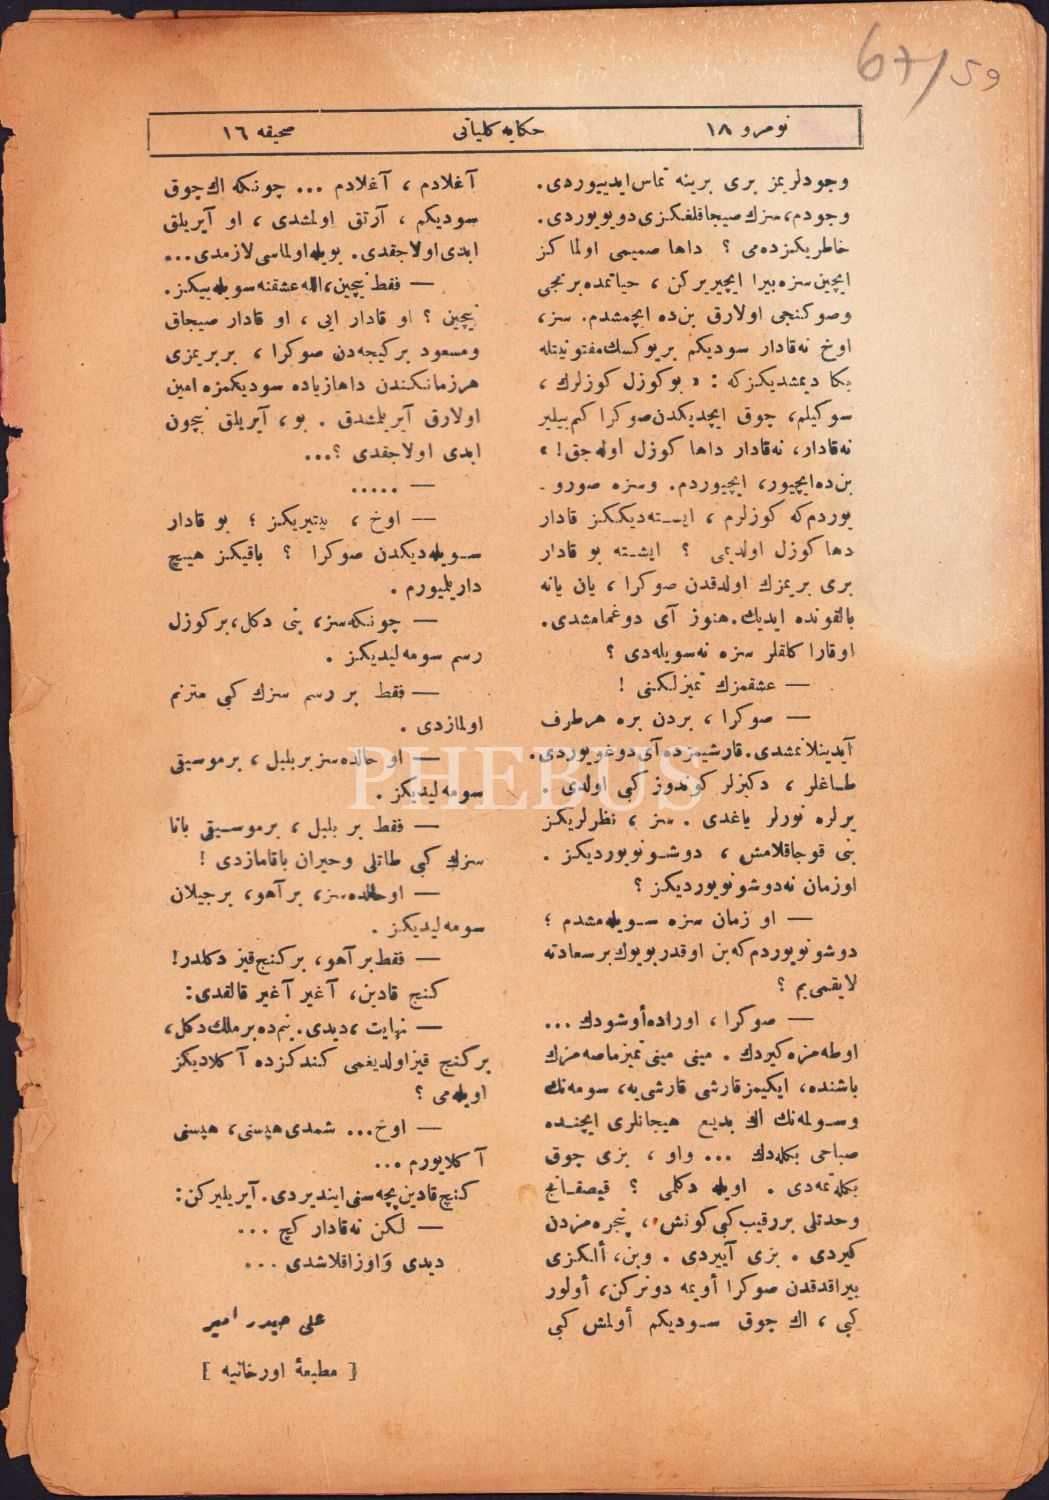 67/59
نومرو ١٨
حكايه كلياتی
صحيفه ١٦
وجودلريمز بری برينه تماس ايديیوردی.
وجودم، سزك صيجاقلغكزی دويويوردی.
خاطريكزده‌می ؟ داها صميمی اولما كز
ايچين سزه بيرا ايچيريركن ، حياتمده برنجی
وصوكنجی اولارق بن ده ايچمشدم. سز،
اوخ نه قادار سوديكم بريوكسك مفتونيتله
بكا ديمشديكزكه : « بوكوزل كوزلرك ،
سوكيلم، چوق ايچديكدن صوكرا كم بيلير
نه قادار، نه قادار داها كوزل اوله جق! »
بن ده ايچيور، ايچيوردم. وسزه صورو-
يوردم كه كوزلرم ، ايسته ديككز قادار
دها كوزل اولديمی ؟ ايشته بو قادار
بری بريمزك اولدقدن صوكرا ، يان يانه
بالقونده ايديك. هنوز آی دوغمامشدی.
اوقارا كلقلر سزه نه سويله دی ؟
— عشقمزك تميزلكنی !
— صوكرا ، بردن بره هرطرف
آيدينلانمشدی. قارشيمزده آی دوغويوردی.
طاغلر ، دكيزلر كوندوز كبی اولدی .
يرلره نورلر ياغدی . سز ، نظرلريكز
بنی قوجاقلامش ، دوشونويورديكز .
اوزمان نه دوشونويورديكز ؟
— او زمان سزه سويله مشدم ؛
دوشونويوردم كه بن اوقدر بويوك برسعادته
لايقمی يم ؟
— صوكرا ، اوراده أوشودك ...
اوطه مزه كيردك . مينی مينی تميزماصه مزك
باشنده، ايكيمز قارشی قارشی يه، سومه نك
وسولمه نك اك بديع هيجانلری ايچنده
صباحی بكله دك ... واو ، بزی چوق
بكله تمه دی . اويله دكلمی ؟ قيصقانج
وحدتلی بررقيب كبی كونش ، پنجره مزدن
كيردی . بزی آييردی . وبن، ألكزی
بيراقدقدن صوكرا أويمه دونركن، أولور
كبی ، اك چوق سوديكم أولمش كبی
آغلادم ، آغلادم ... چونكه اك چوق
سوديكم ، آرتق اولمشدی ، او آيريلق
ابدی اولاجقدی. بويله اولماسی لازمدی...
— فقط نيچين، الله عشقنه سويله ييكز.
نيچين ؟ او قادار ايی ، او قادار صيجاق
ومسعود بركيجه دن صوكرا ، بربريمزی
هرزمانكندن داها زياده سوديكمزه امين
اولارق آيريلمشدق . بو ، آيريلق نيچون
ابدی اولاجقدی ؟...
— .....
— اوخ ، بيتيريكز ؛ بو قادار
سويله ديكدن صوكرا ؟ باقيكز هيچ
داريلميورم .
— چونكه سز، بنی دكل، بركوزل
رسم سومه ليديكز .
— فقط بر رسم سزك كبی مترنم
اولمازدی .
— او حالده سز بربلبل ، برموسيقی
سومه ليديكز .
— فقط بر بلبل ، برموسيقی بانا
سزك كبی طاتلی وحيران باقامازدی !
— او حالده سز، برآهو، برجيلان
سومه ليديكز .
— فقط برآهو، بركنج قيز دكلدر!
كنج قادين، آغير آغير قالقدی :
— نهايت ، ديدی. بنم ده برملك دكل،
بركنج قيز اولديغمی كندكزده آكلاديكز
اويله می ؟
— اوخ... شمدی هپسنی، هپسنی
آكلايورم ...
كنج قادين پچه سنی اينديردی. آيريليركن :
— لكن نه قادار كچ ...
ديدی وَاوزاقلاشدی ...
علی حيدر امير
[ مطبعهٔ اورخانيه ]
PHEBUS